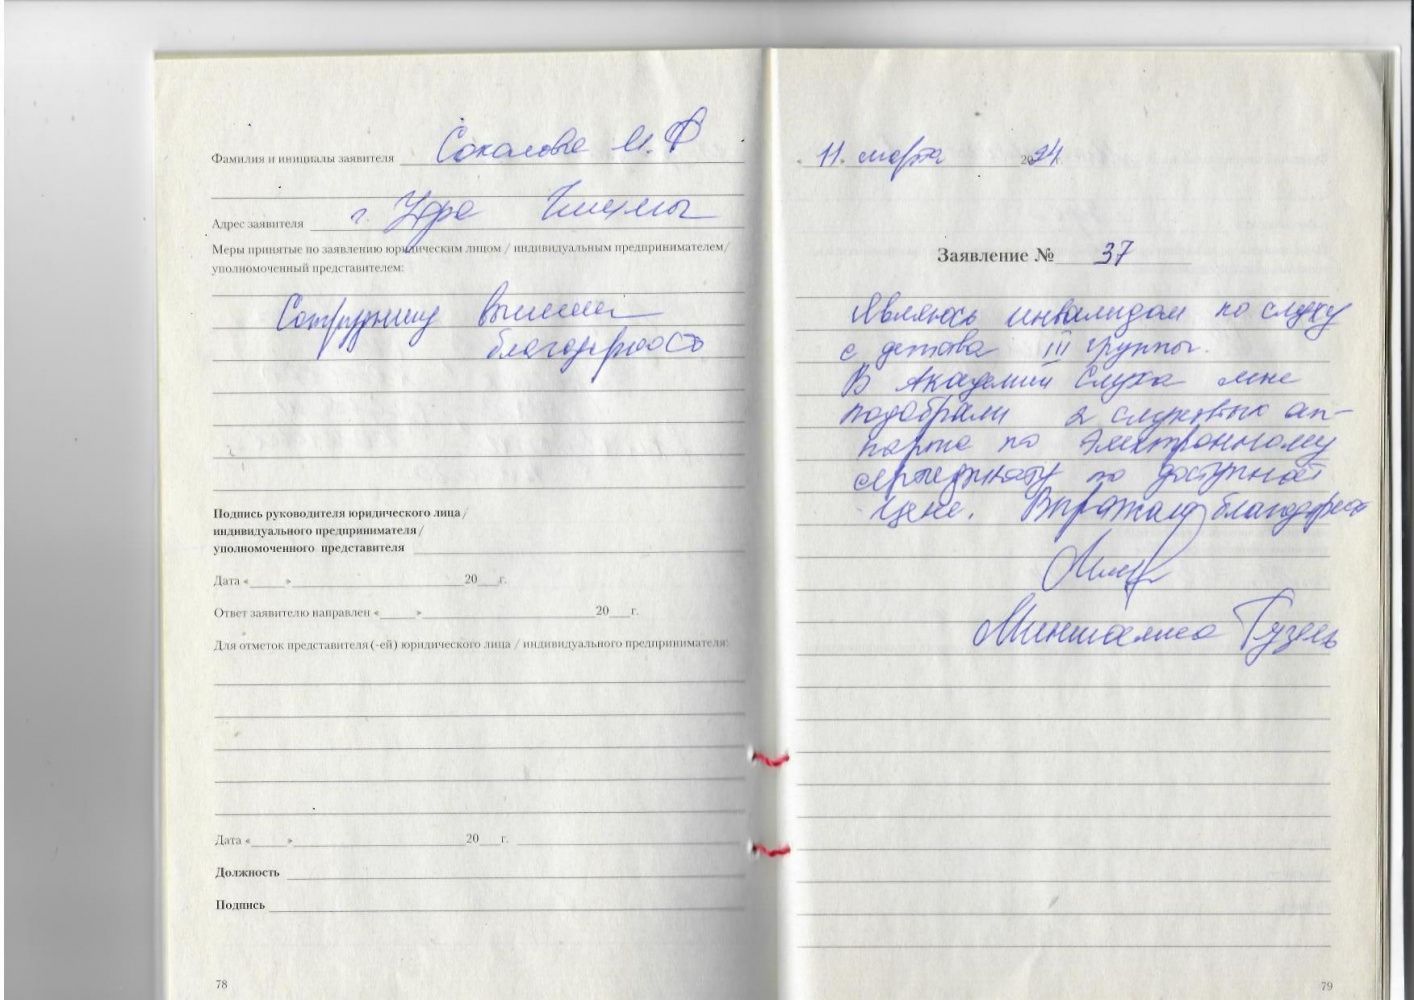 Фамилия и инициалы заявителя Соколова И. Ф
Адрес заявителя г. Уфа
Меры принятые по заявлению юридическим лицом / индивидуальным предпринимателем/
уполномоченный представителем:
Сотруднику
благодарность
Подпись руководителя юридического лица/
индивидуального предпринимателя/
уполномоченного представителя
Дата «____» ____ 20___г.
Ответ заявителю направлен «____» ____ 20___г.
Для отметок представителя (-ей) юридического лица / индивидуального предпринимателя:
Дата «____» ____ 20___г.
Должность
Подпись
78
« 11 » марта 2024 г.
Заявление № 37
Являюсь инвалидом по слуху
с детсва III группы.
В Академии Слуха мне
подобрали 2 слуховых ап-
парта по Электронному
сертификату по доступной
цене. Выражаю
Гузель
79